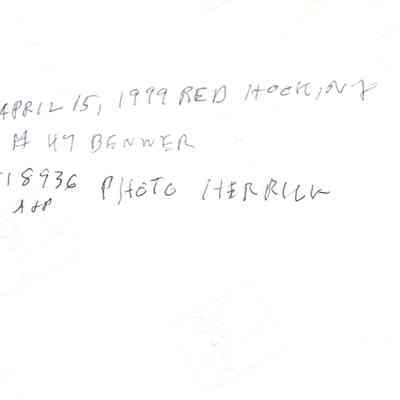 APRIL 15, 1999 RED HOOK, NY
# 47 BENNER
18936 PHOTO HERRICK